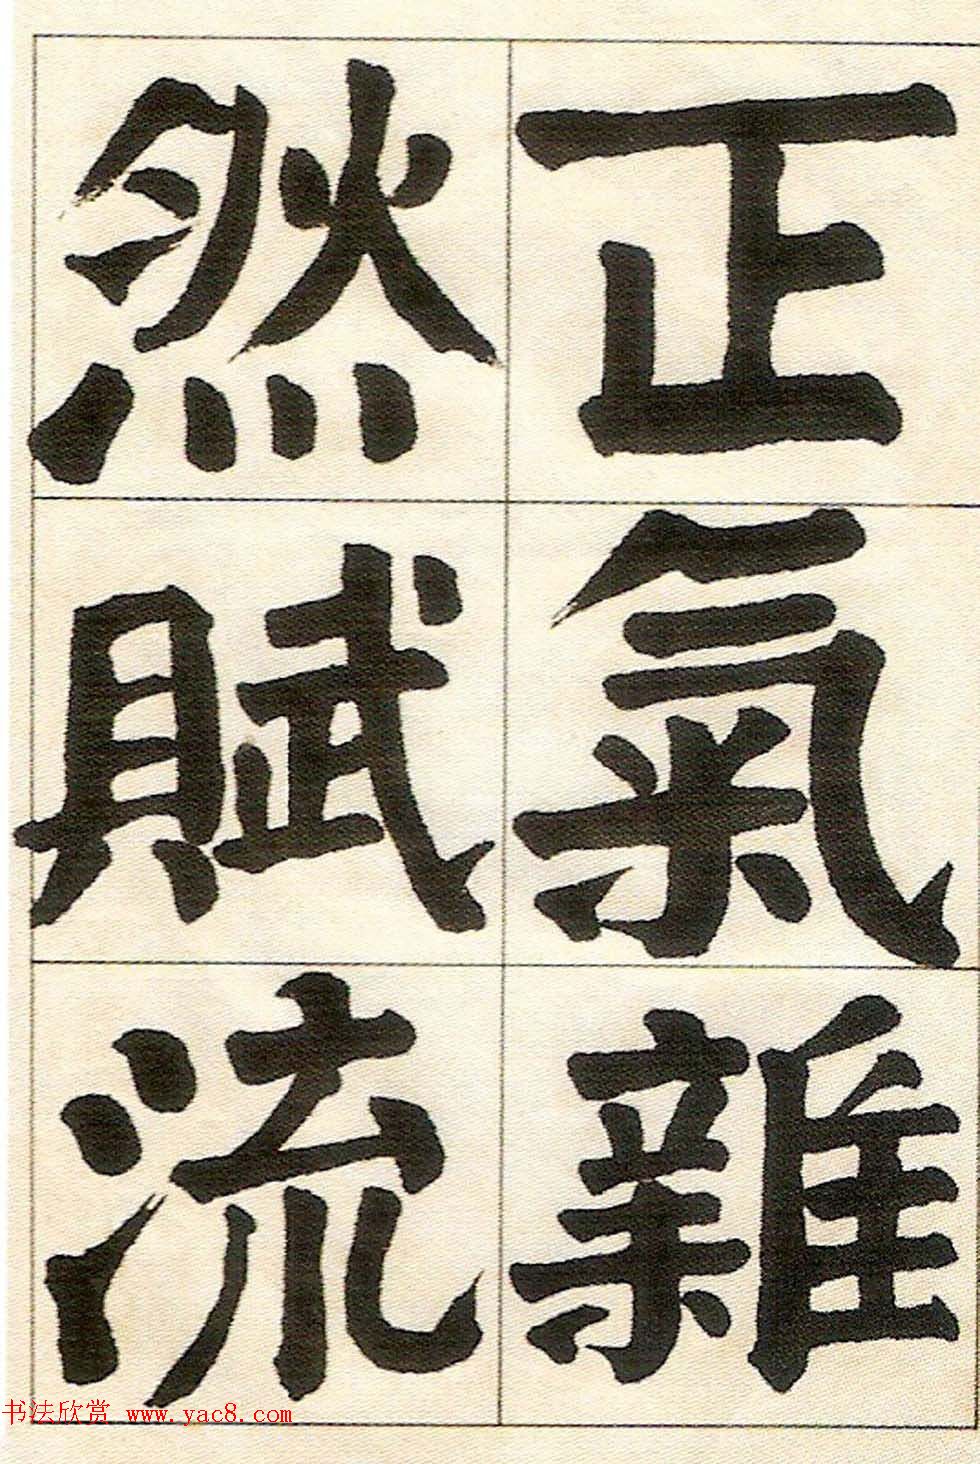 正氣雜
然賦流
书法欣赏 www.yac8.com